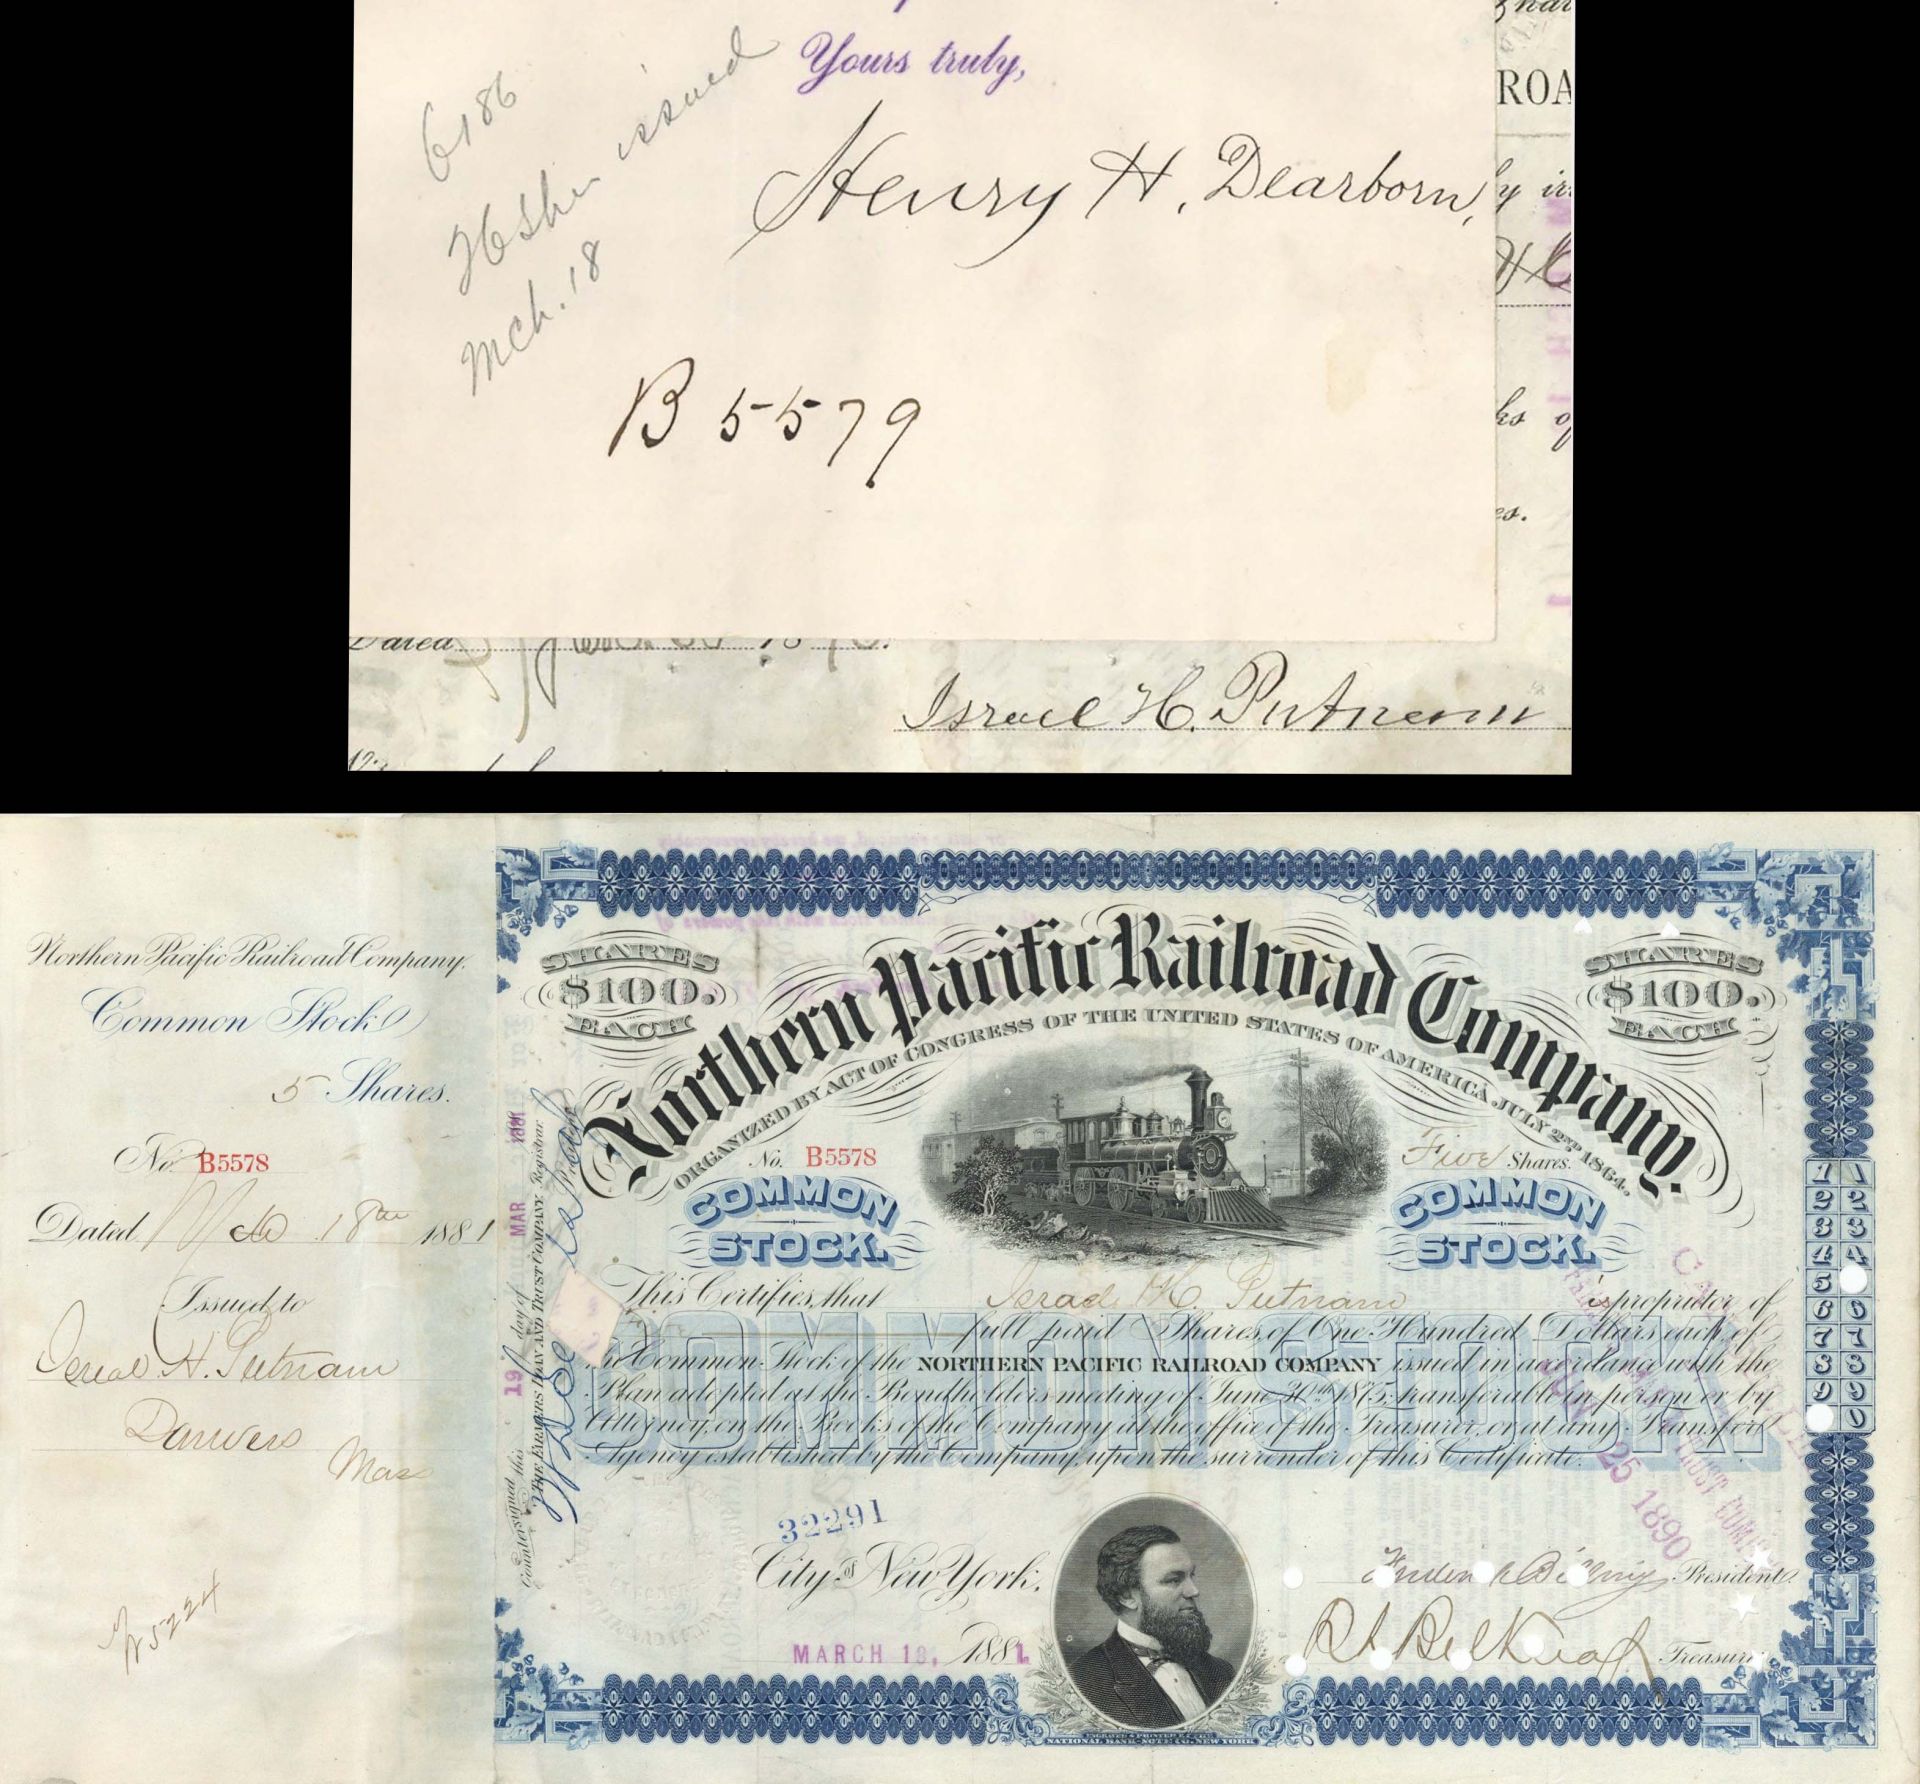 Yours truly,
6186
issued
Mch. 18
Henry H. Dearborn,
B 5579
ROA
ks of
es.
Dated
Israel H. Putnam
Northern Pacific Railroad Company.
Common Stock
5 Shares.
No. B5578
Dated Mch 18th 1881
Issued to
Isreal H. Putnam
Danvers
Mass
25224
Countersigned this 19 day of MAR 1881
THE FARMERS LOAN AND TRUST COMPANY, Registrar
SHARES
$100.
EACH
SHARES
$100.
EACH
Northern Pacific Railroad Company.
ORGANIZED BY ACT OF CONGRESS OF THE UNITED STATES OF AMERICA JULY 2ND 1864.
No. B5578
Five Shares.
COMMON
STOCK.
COMMON
STOCK.
This Certifies that Israel H. Putnam is proprietor of
full paid Shares of One Hundred Dollars each of
the Common Stock of the NORTHERN PACIFIC RAILROAD COMPANY issued in accordance with the
Plan adopted at the Bondholders meeting of June 30th 1875, transferable in person or by
Attorney, on the Books of the Company at the office of the Treasurer, or at any Transfer
Agency established by the Company, upon the surrender of this Certificate.
COMMON STOCK
1 1
2 2
3 3
4 4
5
6 6
7 7
8 8
9 9
0
25 1890
TRUST COMPANY
32291
City of New York,
MARCH 18, 1881
Frederick Billings President.
R L Belknap Treasurer
ENGRAVED & PRINTED BY THE
NATIONAL BANK-NOTE CO. NEW YORK